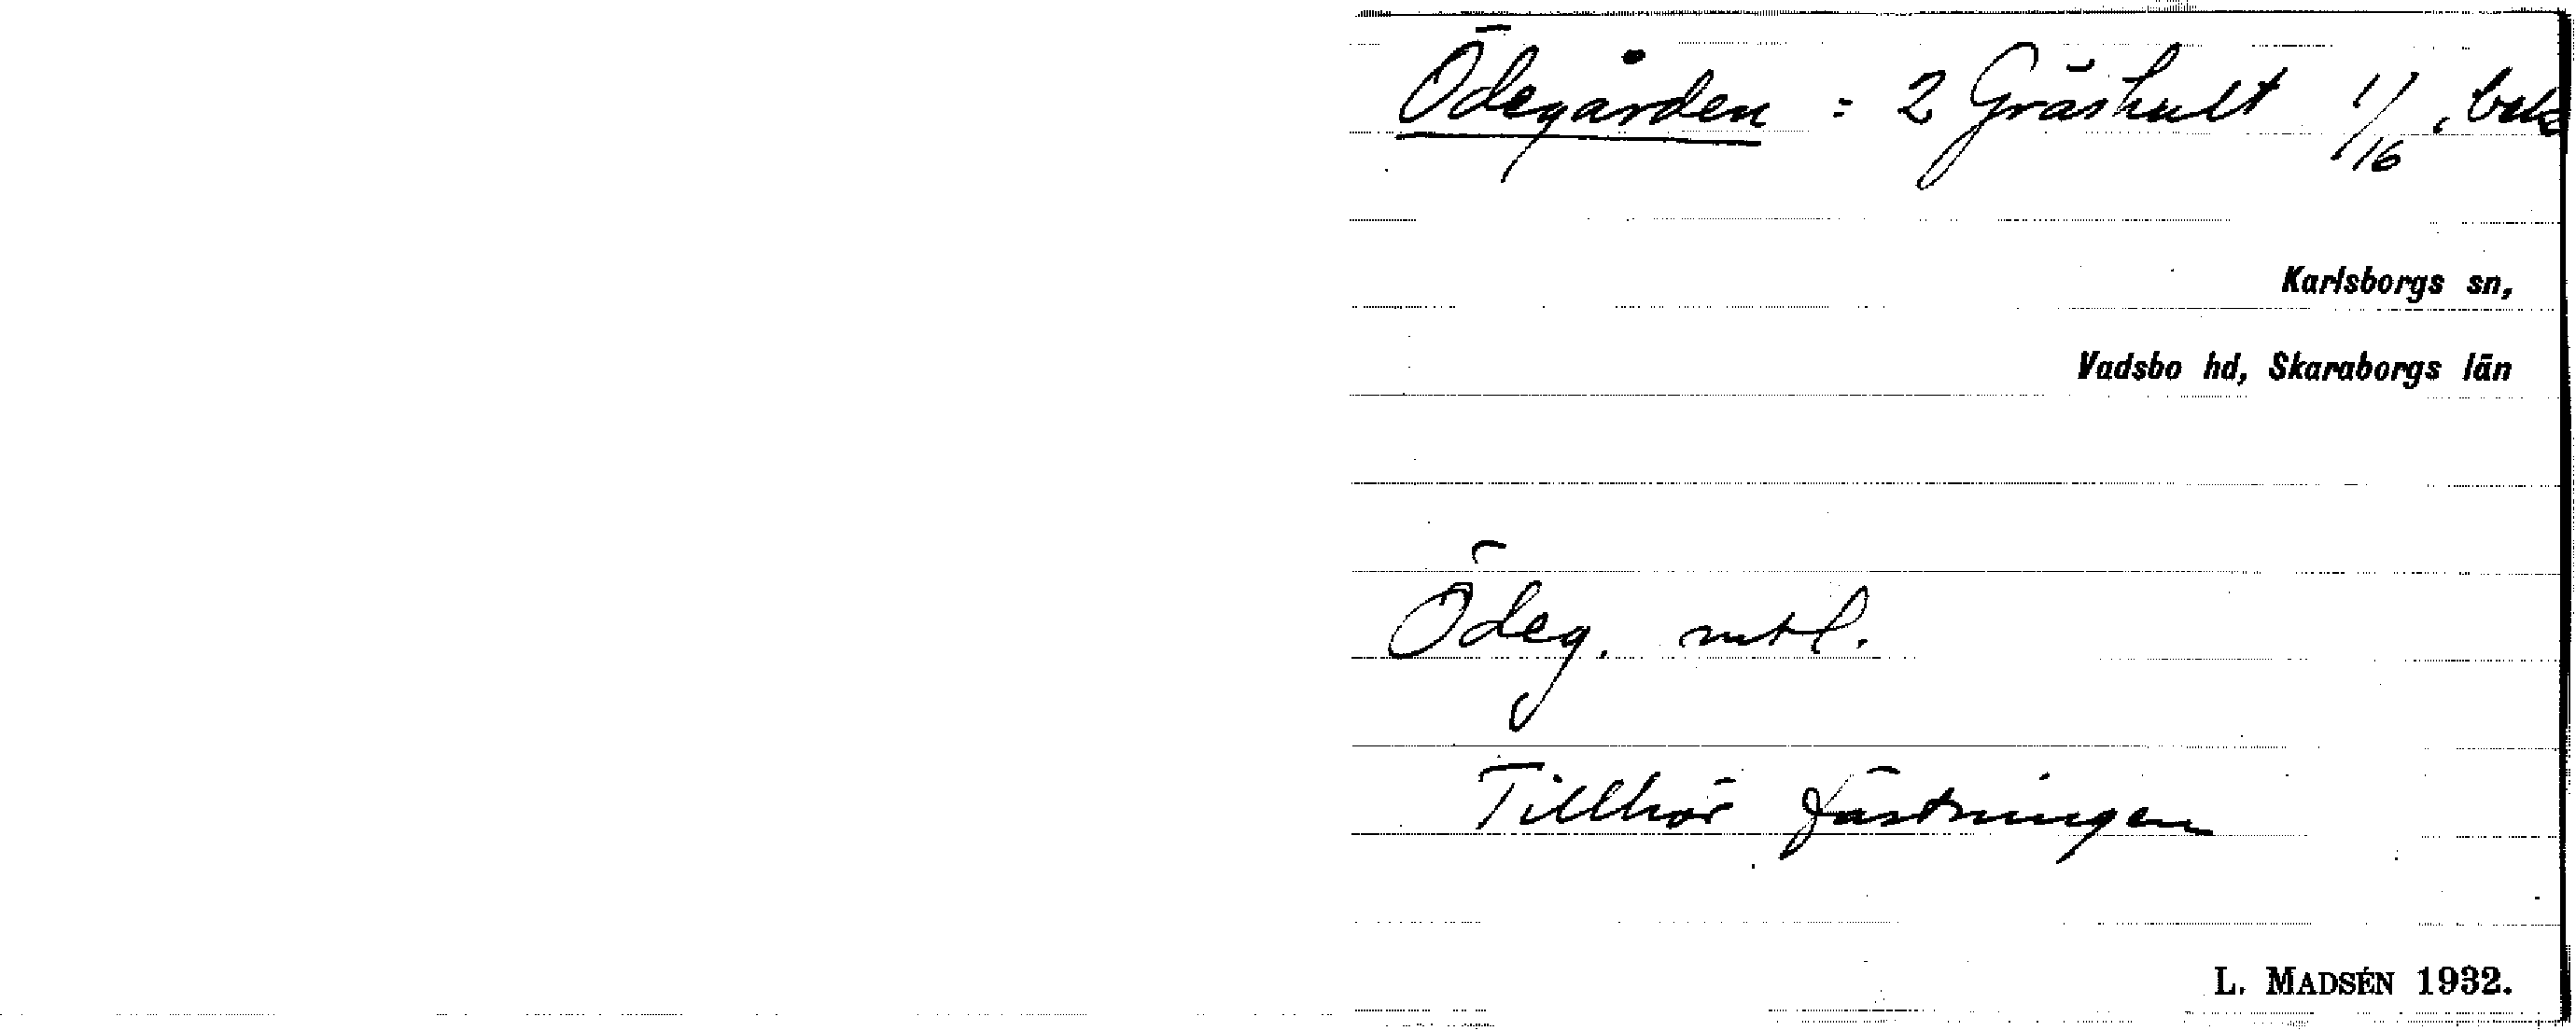 Ödegården = 2 Gräshult 1/16,
Karlsborgs sn,
Vadsbo hd, Skaraborgs län
Ödeg. mtl.
Tillhör fästningen
L. MADSÉN 1932.